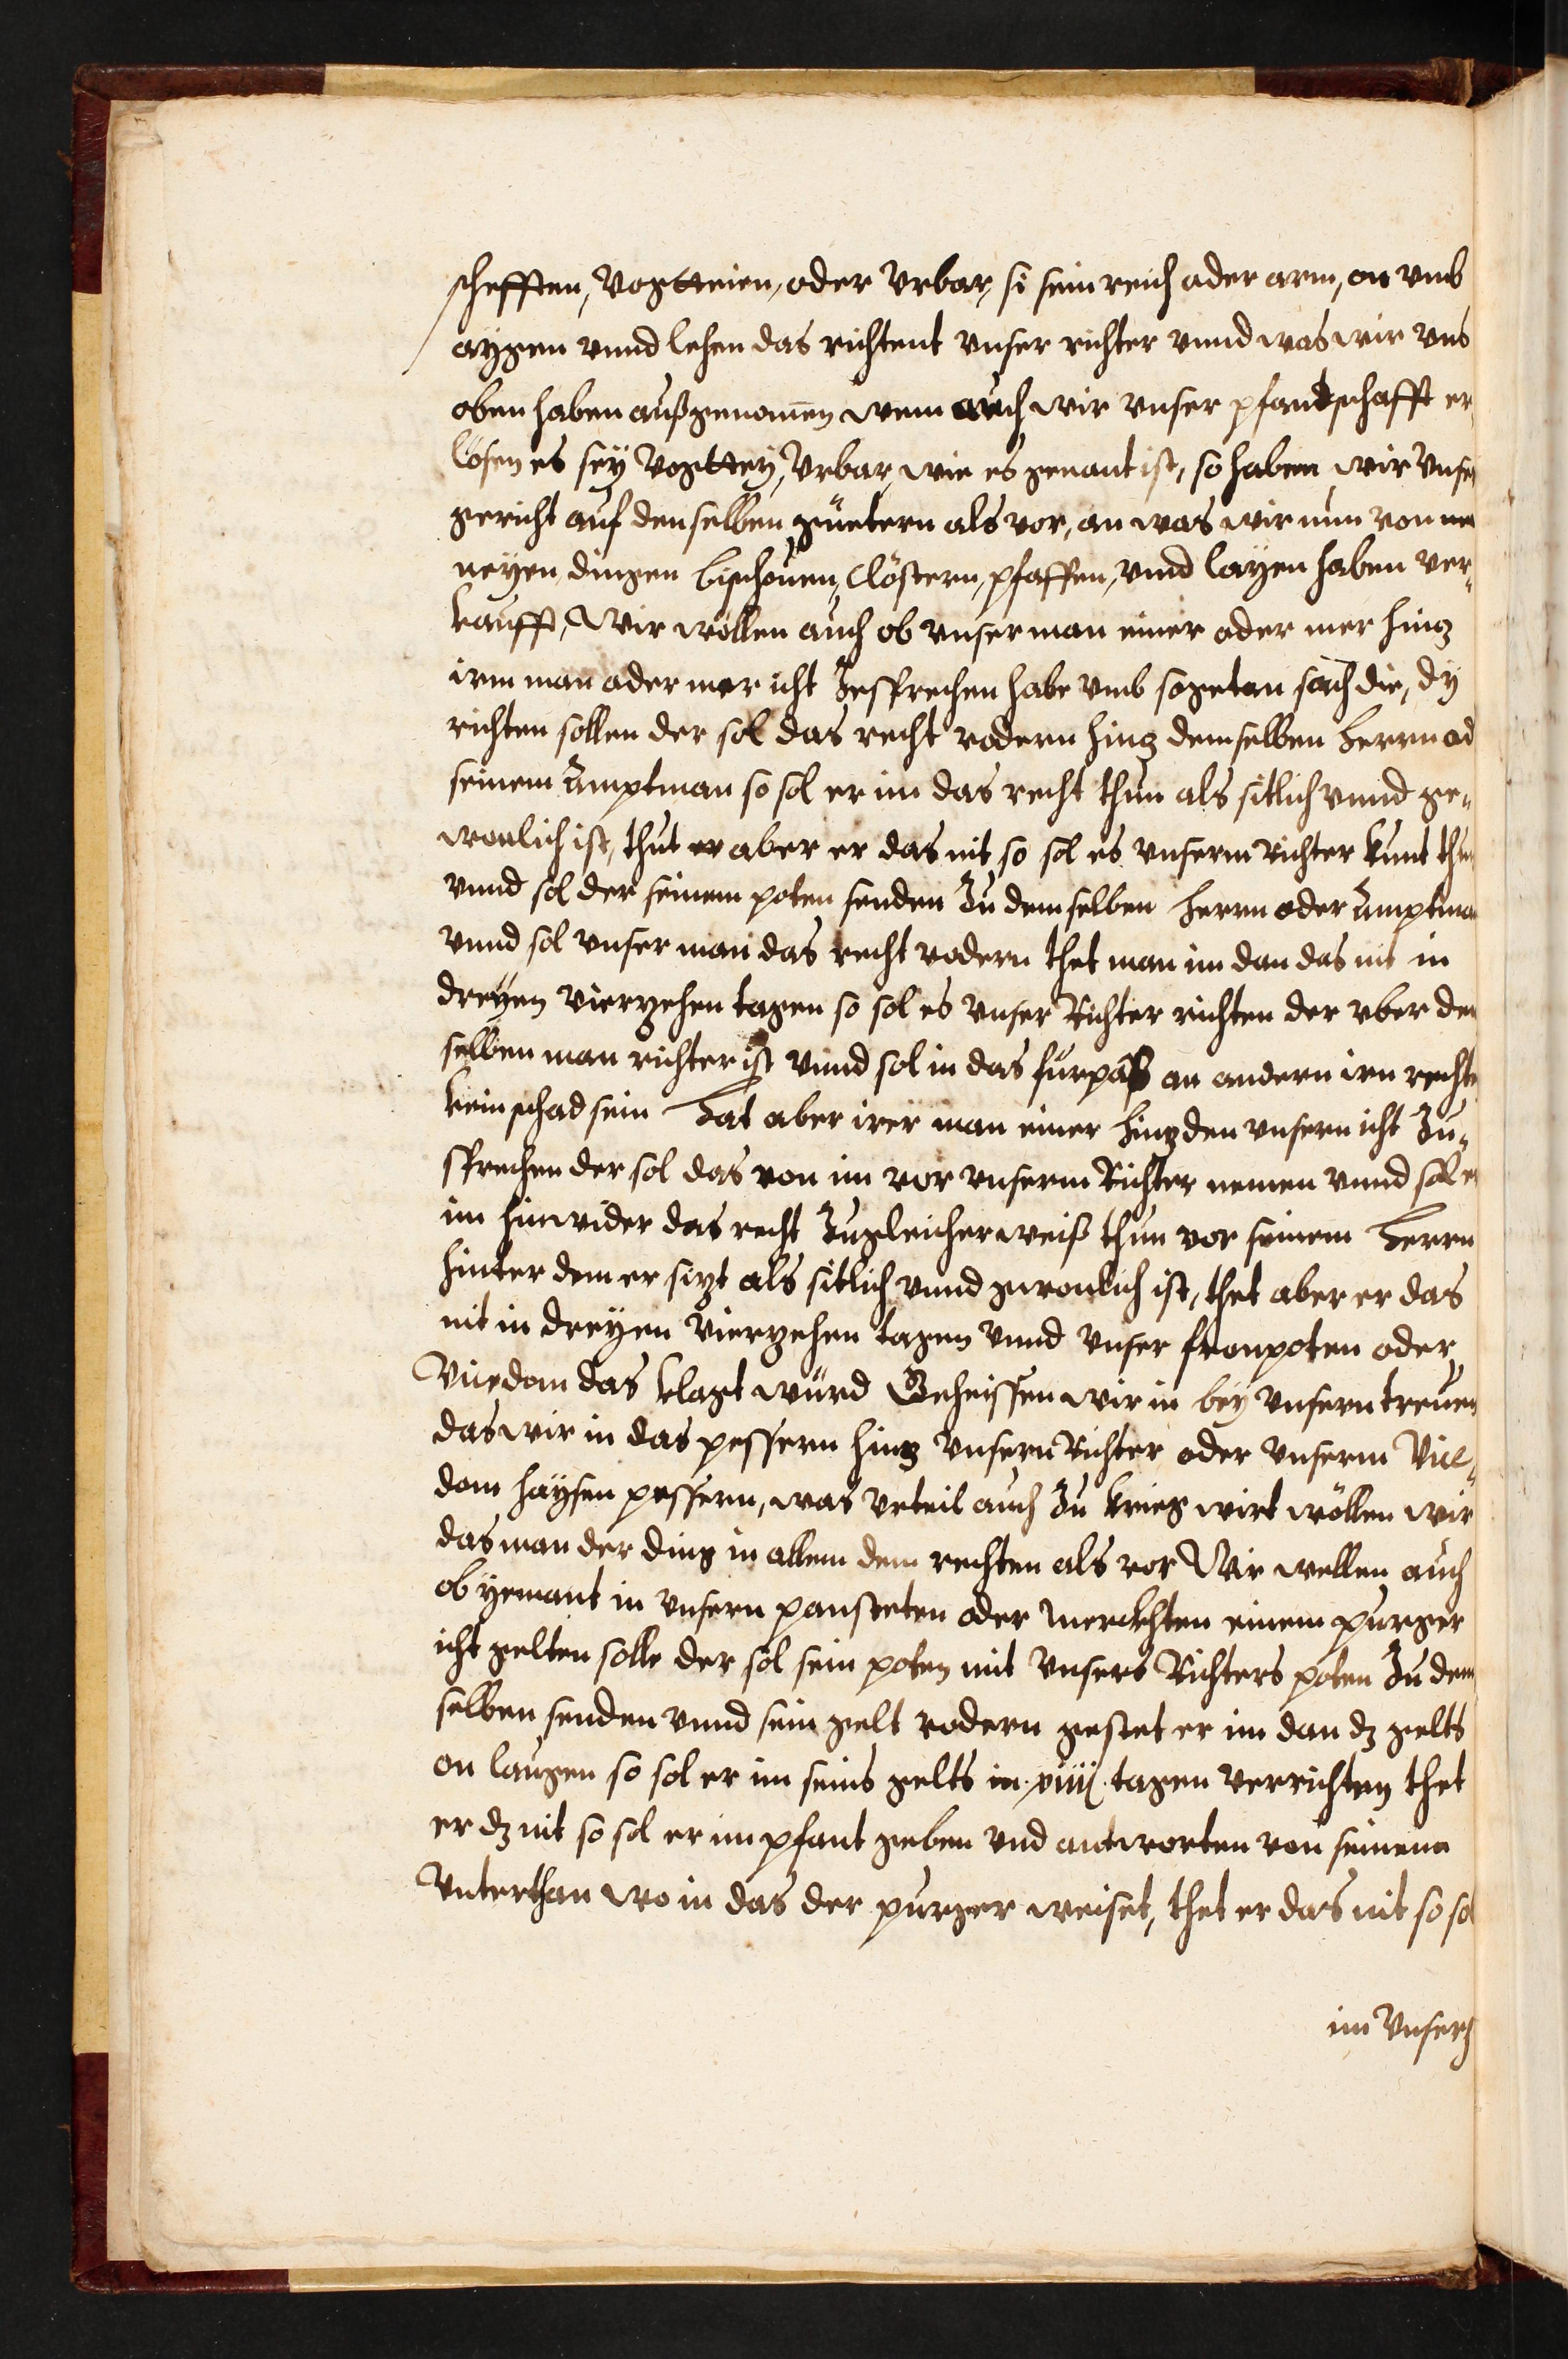 schefften, Vogtteien, oder Vrbar, si sein reich oder arm, on vmb
aygen vnnd lehen das richtent vnser richter vnnd was wir vns
oben haben außgenomen wem auch wir vnser pfandtschafft er
lösen es sey Vogttey, Vrbar, wie es genant ist, so haben wir Vnser
gericht auf denselben güetern als vor, an was wir nun von
neyen dingen bischouen, Clöstern, pfaffen, vnnd layen haben ver-
kaufft, Wir wöllen auch ob vnser man einer oder mer hintz
irm man oder mer icht Zesprechen habe vmb sogetan sach die, dy
richten sollen der sol das recht vodern hintz demselben Herrn od
seinem Amptman so sol er im das recht thun als sitlich vnnd ge-
wonlich ist, thut er aber er das nit so sol es vnserm Richter kunt thun
vnnd sol der seinem poten senden Zu demselben Herrn oder Amptman
vnnd sol vnser man das recht vodern thet man im dan das nit in
dreyen vierzehen tagen so sol es vnser Richter richten der vber den
selben man richter ist vnnd sol in das furpaß an andern irn rechten
kein schad sein Hat aber irer man einer hintz den vnsern icht Zu-
sprechen der sol das von im vor vnserm Richter nemen vnnd sol er
im hinwider das recht Zugleicherweiß thun vor seinem Herrn
hinter dem er sizt als sitlich vnnd gwonlich ist, thet aber er das
nit in dreyen Vierzehen tagen Vnnd Vnser fronpoten oder
Vicedom das klagt würd Geheissen wir in bey Vnsern treuen
das wir in das pessern hintz Vnsern Richter oder vnserm Vice-
dom haysen pessern, was Vrteil auch Zu krieg wirt wöllen wir
das man der ding in allem dem rechten als vor Wir wellen auch
ob yemant in Vnsern pansteten oder Merckhten einem purger
icht gelten solle der sol sein poten mit Vnsers Richters poten Zu dem
selben senden vnnd sein gelt vodern gestet er im dan dz gelts
on laugen so sol er im seins gelts in xiiij tagen Verrichten thet
er dz nit so sol er im pfant geben vnd antworten von seinem
Vnterthan wo in das der purger weiset, thet er das nit so sol
im Vnsern